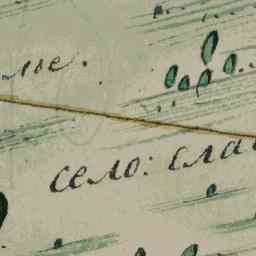 лье.
село: сла